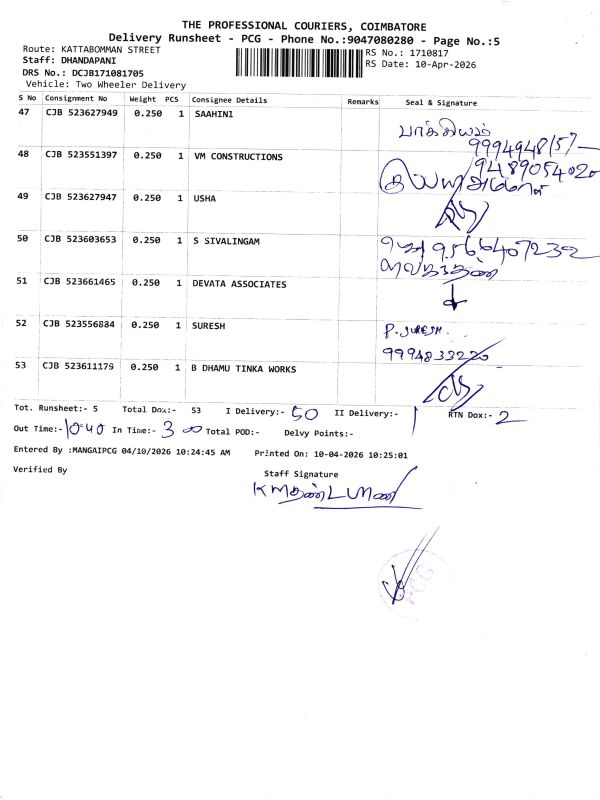 THE PROFESSIONAL COURIERS, COIMBATORE
Delivery Runsheet - PCG - Phone No.:9047080280 - Page No.:5
Route: KATTABOMMAN STREET
RS No.: 1710817
Staff: DHANDAPANI
RS Date: 10-Apr-2026
DRS No.: DCJB171081705
Vehicle: Two Wheeler Delivery
S No Consignment No Weight PCS Consignee Details Remarks Seal & Signature
47 CJB 523627949 0.250 1 SAAHINI
பாக்கியம்
48 CJB 523551397 0.250 1 VM CONSTRUCTIONS
9489054020
49 CJB 523627947 0.250 1 USHA
50 CJB 523603653 0.250 1 S SIVALINGAM
9566407232
51 CJB 523661465 0.250 1 DEVATA ASSOCIATES
52 CJB 523556884 0.250 1 SURESH
P. SURESH
9994833220
53 CJB 523611179 0.250 1 B DHAMU TINKA WORKS
Tot. Runsheet:- 5 Total Dox:- 53 I Delivery:- 50 II Delivery:- 1 RTN Dox:- 2
Out Time:- 10:40 In Time:- 3 00 Total POD:- Delvy Points:-
Entered By :MANGAIPCG 04/10/2026 10:24:45 AM Printed On: 10-04-2026 10:25:01
Verified By
Staff Signature
PCG